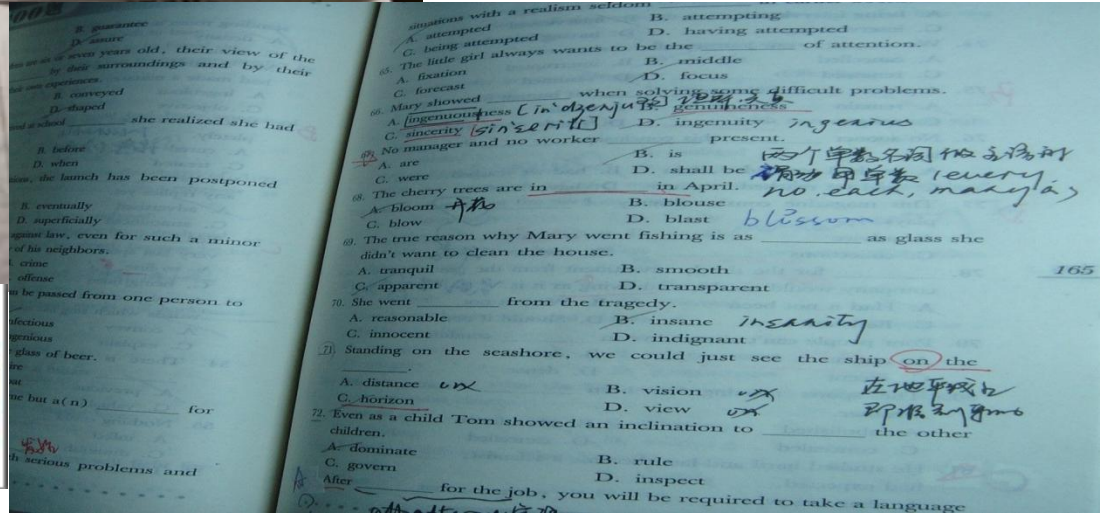 B. guarantee
D. assure
or seven years old, their view of the
by their surroundings and by their
own experiences.
B. conveyed
D. shaped
she realized she had
B. before
D. when
the lunch has been postponed
B. eventually
D. superficially
against law, even for such a minor
of his neighbors.
crime
offense
be passed from one person to
glass of beer.
but a(n) ________ for
serious problems and
situations with a realism seldom ________
A. attempted
B. attempting
C. being attempted
D. having attempted
65. The little girl always wants to be the ________ of attention.
A. fixation
B. middle
C. forecast
D. focus
66. Mary showed ________ when solving some difficult problems.
A. ingenuousness
genuineness
C. sincerity
D. ingenuity
67. No manager and no worker ________ present.
A. are
B. is
两个单数名词做主语时
C. were
D. shall be
用单数 (every,
no, each, many a)
68. The cherry trees are in ________ in April.
A. bloom 开花
B. blouse
C. blow
D. blast blossom
69. The true reason why Mary went fishing is as ________ as glass she
didn't want to clean the house.
A. tranquil
B. smooth
C. apparent
D. transparent
165
70. She went ________ from the tragedy.
A. reasonable
B. insane insanity
C. innocent
D. indignant
71. Standing on the seashore, we could just see the ship on the
________.
A. distance
B. vision
在地平线上
C. horizon
D. view
72. Even as a child Tom showed an inclination to ________ the other
children.
A. dominate
B. rule
C. govern
D. inspect
A
After ________ for the job, you will be required to take a language